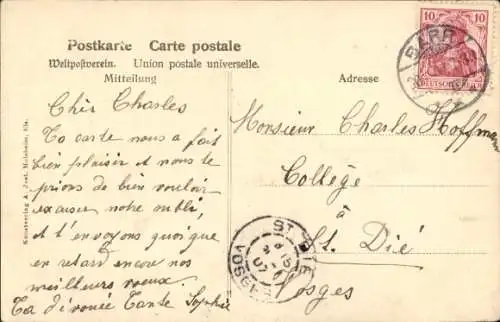 Postkarte Carte postale
Weltpostverein. Union postale universelle.
Mitteilung
Adresse
Chèr Charles
Ta carte nous a fait
bien plaisir et nous te
prions de bien vouloir
excuser notre oubli,
et t'envoyons quoique
en retard encore nos
meilleurs voeux
Ta dévouée Tante Sophie
Monsieur Charles Hoffmann
Collège
à
St. Dié
Vosges
10 10
DEUTSCHES REICH
BARR
ST DIÉ
VOSGES
07
Kunstverlag A. Jost, Molsheim, Els.